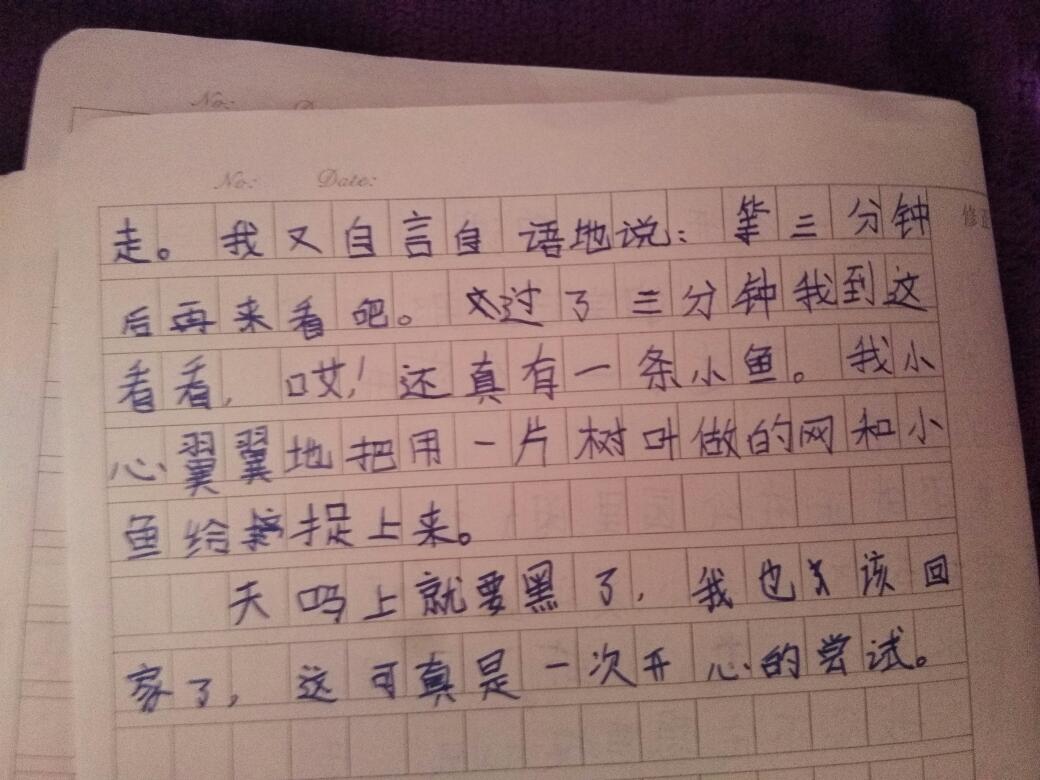 No: D
No: Date:
修正
走。我又自言自语地说：等三分钟
后再来看吧。过了三分钟我到这
看看，哎！还真有一条小鱼。我小
心翼翼地把用一片树叶做的网和小
鱼给捉上来。
天吗上就要黑了，我也该回
家了，这可真是一次开心的尝试。